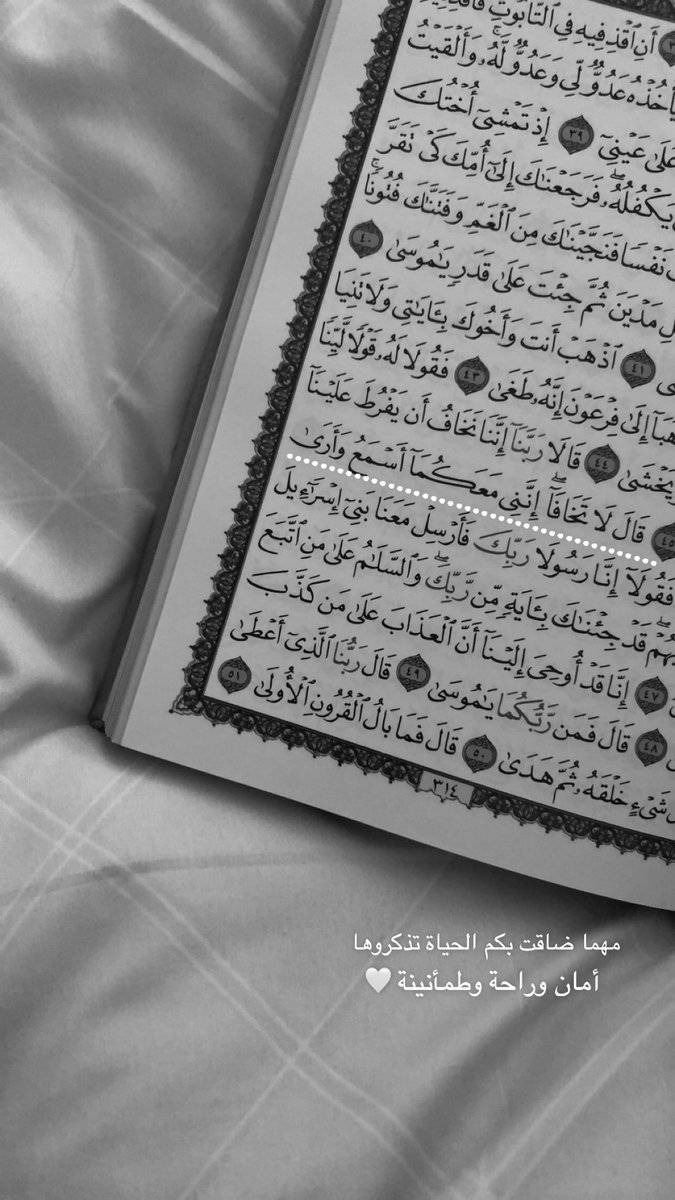 أَنِ ٱقۡذِفِيهِ فِي ٱلتَّابُوتِ
يَأۡخُذۡهُ عَدُوّٞ لِّي وَعَدُوّٞ لَّهُۥۚ وَأَلۡقَيۡتُ
عَلَىٰ عَيۡنِيٓ ٣٩ إِذۡ تَمۡشِيٓ أُخۡتُكَ
يَكۡفُلُهُۥۖ فَرَجَعۡنَٰكَ إِلَىٰٓ أُمِّكَ كَيۡ تَقَرَّ
نَفۡسٗا فَنَجَّيۡنَٰكَ مِنَ ٱلۡغَمِّ وَفَتَنَّٰكَ فُتُونٗاۚ
مَدۡيَنَ ثُمَّ جِئۡتَ عَلَىٰ قَدَرٖ يَٰمُوسَىٰ ٤٠
٤١ ٱذۡهَبۡ أَنتَ وَأَخُوكَ بِـَٔايَٰتِي وَلَا تَنِيَا
إِلَىٰ فِرۡعَوۡنَ إِنَّهُۥ طَغَىٰ ٤٣ فَقُولَا لَهُۥ قَوۡلٗا لَّيِّنٗا
يَخۡشَىٰ ٤٤ قَالَا رَبَّنَآ إِنَّنَا نَخَافُ أَن يَفۡرُطَ عَلَيۡنَآ
٤٥ قَالَ لَا تَخَافَآۖ إِنَّنِي مَعَكُمَآ أَسۡمَعُ وَأَرَىٰ
فَقُولَآ إِنَّا رَسُولَا رَبِّكَ فَأَرۡسِلۡ مَعَنَا بَنِيٓ إِسۡرَٰٓءِيلَ
قَدۡ جِئۡنَٰكَ بِـَٔايَةٖ مِّن رَّبِّكَۖ وَٱلسَّلَٰمُ عَلَىٰ مَنِ ٱتَّبَعَ
٤٧ إِنَّا قَدۡ أُوحِيَ إِلَيۡنَآ أَنَّ ٱلۡعَذَابَ عَلَىٰ مَن كَذَّبَ
٤٨ قَالَ فَمَن رَّبُّكُمَا يَٰمُوسَىٰ ٤٩ قَالَ رَبُّنَا ٱلَّذِيٓ أَعۡطَىٰ
شَيۡءٍ خَلۡقَهُۥ ثُمَّ هَدَىٰ ٥٠ قَالَ فَمَا بَالُ ٱلۡقُرُونِ ٱلۡأُولَىٰ ٥١
٣١٤
مهما ضاقت بكم الحياة تذكروها
أمان وراحة وطمأنينة 🤍